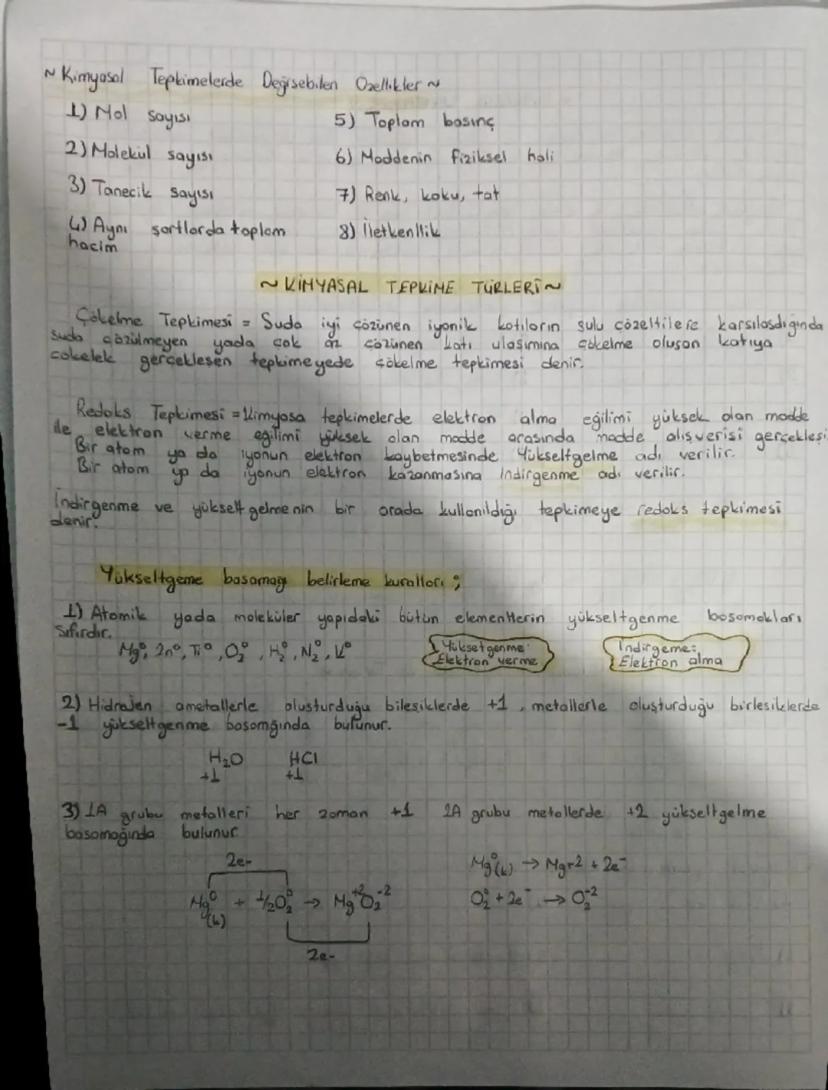 ~ Kimyasal Tepkimelerde Değişebilen Özellikler ~
1) Mol sayısı
2) Molekül sayısı
3) Tanecik sayısı
4) Aynı şartlarda toplam
hacim
5) Toplam basınç
6) Maddenin fiziksel hali
7) Renk, koku, tat
8) İletkenllik
~ KİMYASAL TEPKİME TÜRLERİ ~
Çökelme Tepkimesi = Suda iyi çözünen iyonik katıların sulu çözeltilere karsılasdıgında
suda çözülmeyen yada çok az çözünen katı ulaşımına çökelme oluşan katıya
çökelek gerçekleşen tepkimeyede çökelme tepkimesi denir.
Redoks Tepkimesi = Kimyasa tepkimelerde elektron alma eğilimi yüksek olan madde
ile elektron verme eğilimi yüksek olan madde arasında madde alışverişi gerçekleşi
Bir atom ya da iyonun elektron kaybetmesinde Yükseltgelme adı verilir.
Bir atom ya da iyonun elektron kazanmasına İndirgenme adı verilir.
İndirgenme ve yükseltgelmenin bir arada kullanıldığı tepkimeye redoks tepkimesi
denir.
Yükseltgeme basamağı belirleme kuralları ;
1) Atomik yada moleküler yapıdaki bütün elementlerin yükseltgenme basamakları
sıfırdır.
Mg⁰, Zn⁰, Ti⁰, O₂⁰, H₂⁰, N₂⁰, K⁰
Yüksetgenme:
Elektron verme
İndirgeme:
Elektron alma
2) Hidrojen ametallerle oluşturduğu bileşiklerde +1, metallerle oluşturduğu birleşiklerde
-1 yükseltgenme basamğında bulunur.
H₂O HCl
+1 +1
3) 1A grubu metalleri her zaman +1 2A grubu metallerde +2 yükseltgelme
basamağında bulunur
2e-
Mg⁰(k) + 1/2O₂⁰ → Mg⁺²O₂⁻²
2e-
Mg⁰(k) → Mg+2 + 2e⁻
O₂⁰ + 2e⁻ → O₂⁻²